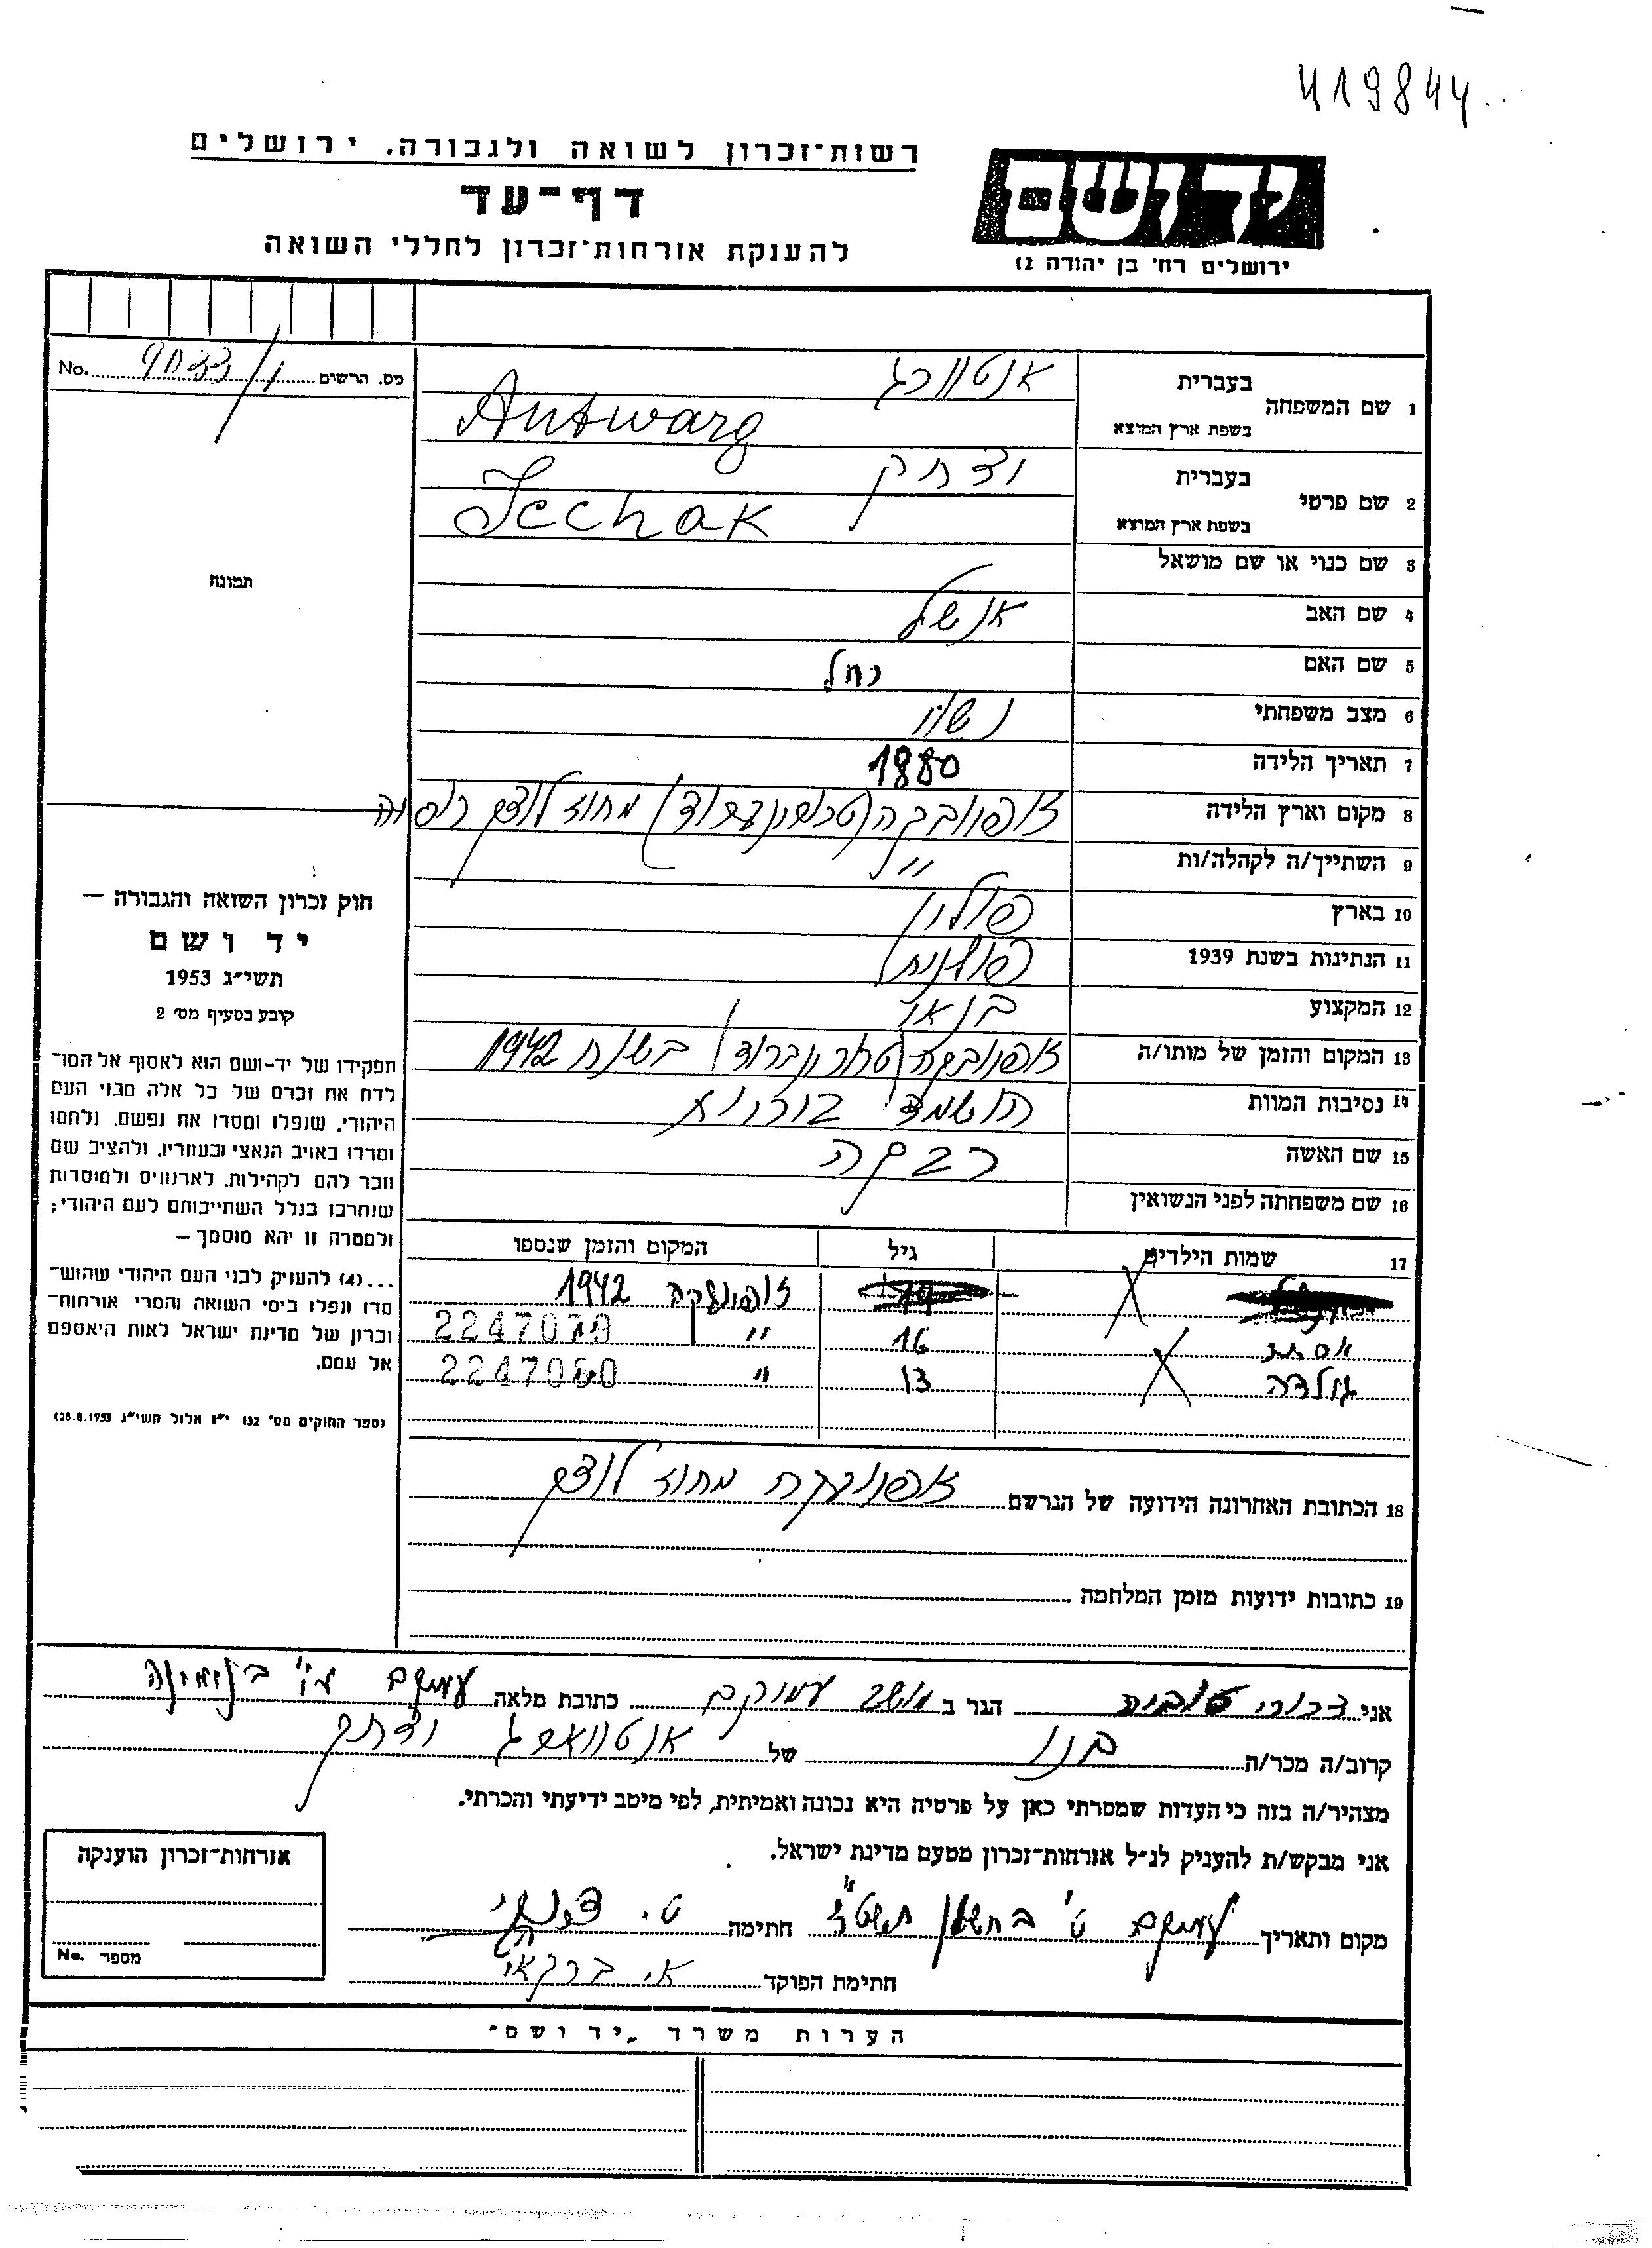 419844
רשות-זכרון לשואה ולגבורה, ירושלים
דף-עד
להענקת אזרחות-זכרון לחללי השואה
ידושם
ירושלים רח' בן יהודה 12
מס. הרשום No.
1 שם המשפחה
בעברית אנטוורג
בשפת ארץ המוצא Antwarg
2 שם פרטי
בעברית יצחק
בשפת ארץ המוצא Icchak
3 שם כנוי או שם מושאל
4 שם האב אנשל
5 שם האם רחל
6 מצב משפחתי נשוי
7 תאריך הלידה 1880
8 מקום וארץ הלידה מחוז לוצק
9 השתייך/ה לקהלה/ות "
10 בארץ פולין
11 הנתינות בשנת 1939 פולנית
12 המקצוע בנאי
13 המקום והזמן של מותו/ה בשנת 1942
14 נסיבות המוות הושמד
15 שם האשה רבקה
16 שם משפחתה לפני הנשואין
17 שמות הילדים גיל המקום והזמן שנספו
1942
אסתר 16 " 2247079
גולדה 13 " 2247080
18 הכתובת האחרונה הידועה של הנרשם מחוז לוצק
19 כתובות ידועות מזמן המלחמה
תמונה
חוק זכרון השואה והגבורה —
יד ושם
תשי"ג 1953
קובע בסעיף מס' 2
תפקידו של יד-ושם הוא לאסוף אל המו-
לדת את זכרם של כל אלה מבני העם
היהודי, שנפלו ומסרו את נפשם, נלחמו
ומרדו באויב הנאצי ובעוזריו, ולהציב שם
וזכר להם לקהילות, לארגונים ולמוסדות
שנחרבו בגלל השתייכותם לעם היהודי;
ולמטרה זו יהא מוסמך —
...(4) להעניק לבני העם היהודי שהוש-
מדו ונפלו בימי השואה והמרי אזרחות-
זכרון של מדינת ישראל לאות היאספם
אל עמם.
(ספר החוקים מס' 132 י"ז אלול תשי"ג 28.8.1953)
אני צבורי טוביה הגר ב מושב עמוקם כתובת מלאה עמיקם ע"י בנימינה
קרוב/ה מכר/ה בנו של אנטווארג יצחק
מצהיר/ה בזה כי העדות שמסרתי כאן על פרטיה היא נכונה ואמיתית, לפי מיטב ידיעתי והכרתי.
אני מבקש/ת להעניק לנ"ל אזרחות-זכרון מטעם מדינת ישראל.
מקום ותאריך עמיקם ט' בחשון תשט"ז חתימה ט. צבורי
חתימת הפוקד א. ברקאי
אזרחות-זכרון הוענקה
מספר No.
הערות משרד "יד ושם"